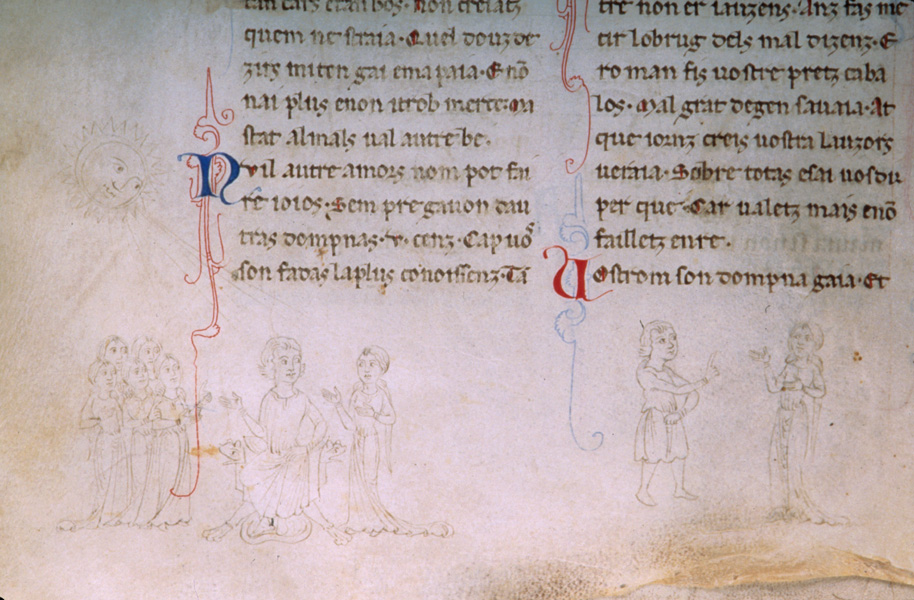 quem ne straia. Quel douz de
zirs mi ten gai em apaia. E nō
nai plus enon itrob merce. Ma
stat almals ual autre be.
Nuil autre amors nom pot fai
re ioios. Sem pregauon dau
tras dompnas. v. cenz. Cap uos
son fadas la plus conoissenz. Ta
tre non er lauzens. Anz fas me
tir lo brug dels mal dizenz. E
ro man fis uostre pretz caba
los. Mal grat de gen sauaia. At
que iornz creis uostra lauzors
ueraia. Sobre totas e sai uos du
per que. Car ualetz mais e nō
failletz en re.
Uostrom son dompna gaia. Et